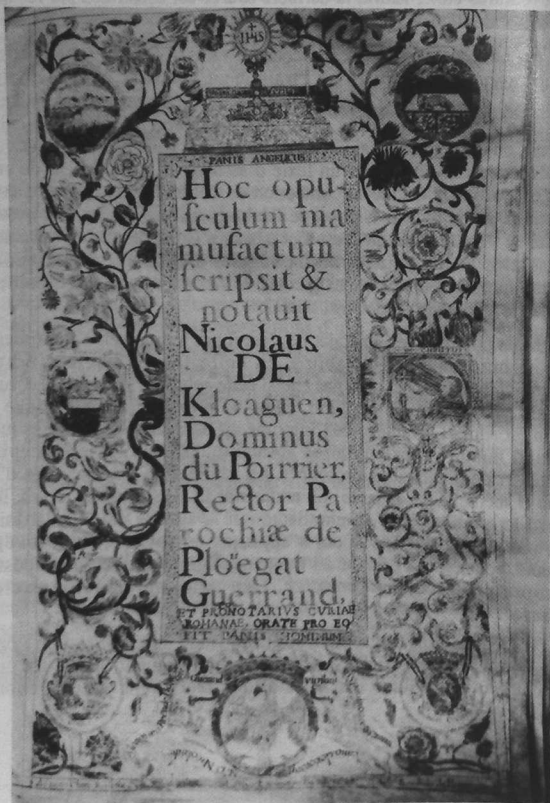 IHS
PANIS ANGELICUS
Hoc opu-
sculum ma
nufactum
scripsit &
notauit
Nicolaus
DE
Kloaguen,
Dominus
du Poirrier,
Rector Pa
rochiæ de
Ploëgat
Guerrand,
ET PRONOTARIVS CVRIAE
ROMANAE. ORATE PRO EO
FIT PANIS HOMINUM